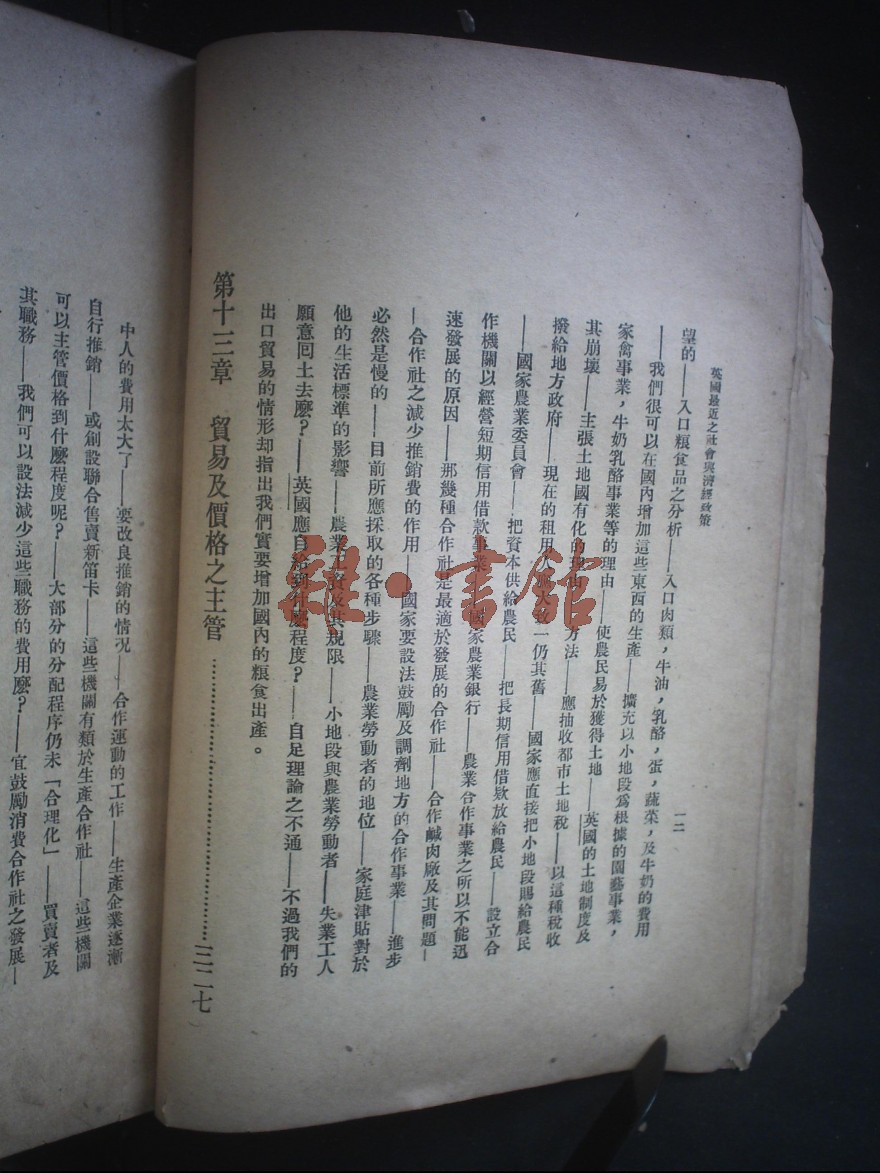 英國最近之社會與濟經政策
一二
望的——入口粮食品之分析——入口肉類，牛油，乳酪，蛋，蔬菜，及牛奶的費用
——我們很可以在國內增加這些東西的生產——擴充以小地段爲根據的園藝事業，
家禽事業，牛奶乳酪事業等的理由——使農民易於獲得土地——英國的土地制度及
其崩壞——主張土地國有化的理由 方法——應抽收都市土地稅——以這種稅收
撥給地方政府——現在的租用人 大 一仍其舊——國家應直接把小地段賜給農民
——國家農業委員會——把資本供給農民——把長期信用借欵放給農民——設立合
作機關以經營短期信用借款事業 國家農業銀行——農業合作事業之所以不能迅
速發展的原因——那幾種合作社是最適於發展的合作社——合作鹹肉廠及其問題—
—合作社之減少推銷費的作用——國家要設法鼓勵及調劑地方的合作事業——進步
必然是慢的——目前所應採取的各種步驟——農業勞動者的地位——家庭津貼對於
他的生活標準的影響——農業工資及其規限——小地段與農業勞動者——失業工人
願意囘土去麽？——英國應自給到什麽程度？——自足理論之不通——不過我們的
出口貿易的情形却指出我們實要增加國內的粮食出產。
第十三章　貿易及價格之主管……………………三二七
中人的費用太大了——要改良推銷的情況——合作運動的工作——生產企業逐漸
自行推銷——或創設聯合售賣新笛卡——這些機關有類於生產合作社——這些機關
可以主管價格到什麽程度呢？——大部分的分配程序仍未「合理化」——買賣者及
其職務——我們可以設法減少這些職務的費用麽？——宜鼓勵消費合作社之發展—
雅·書館